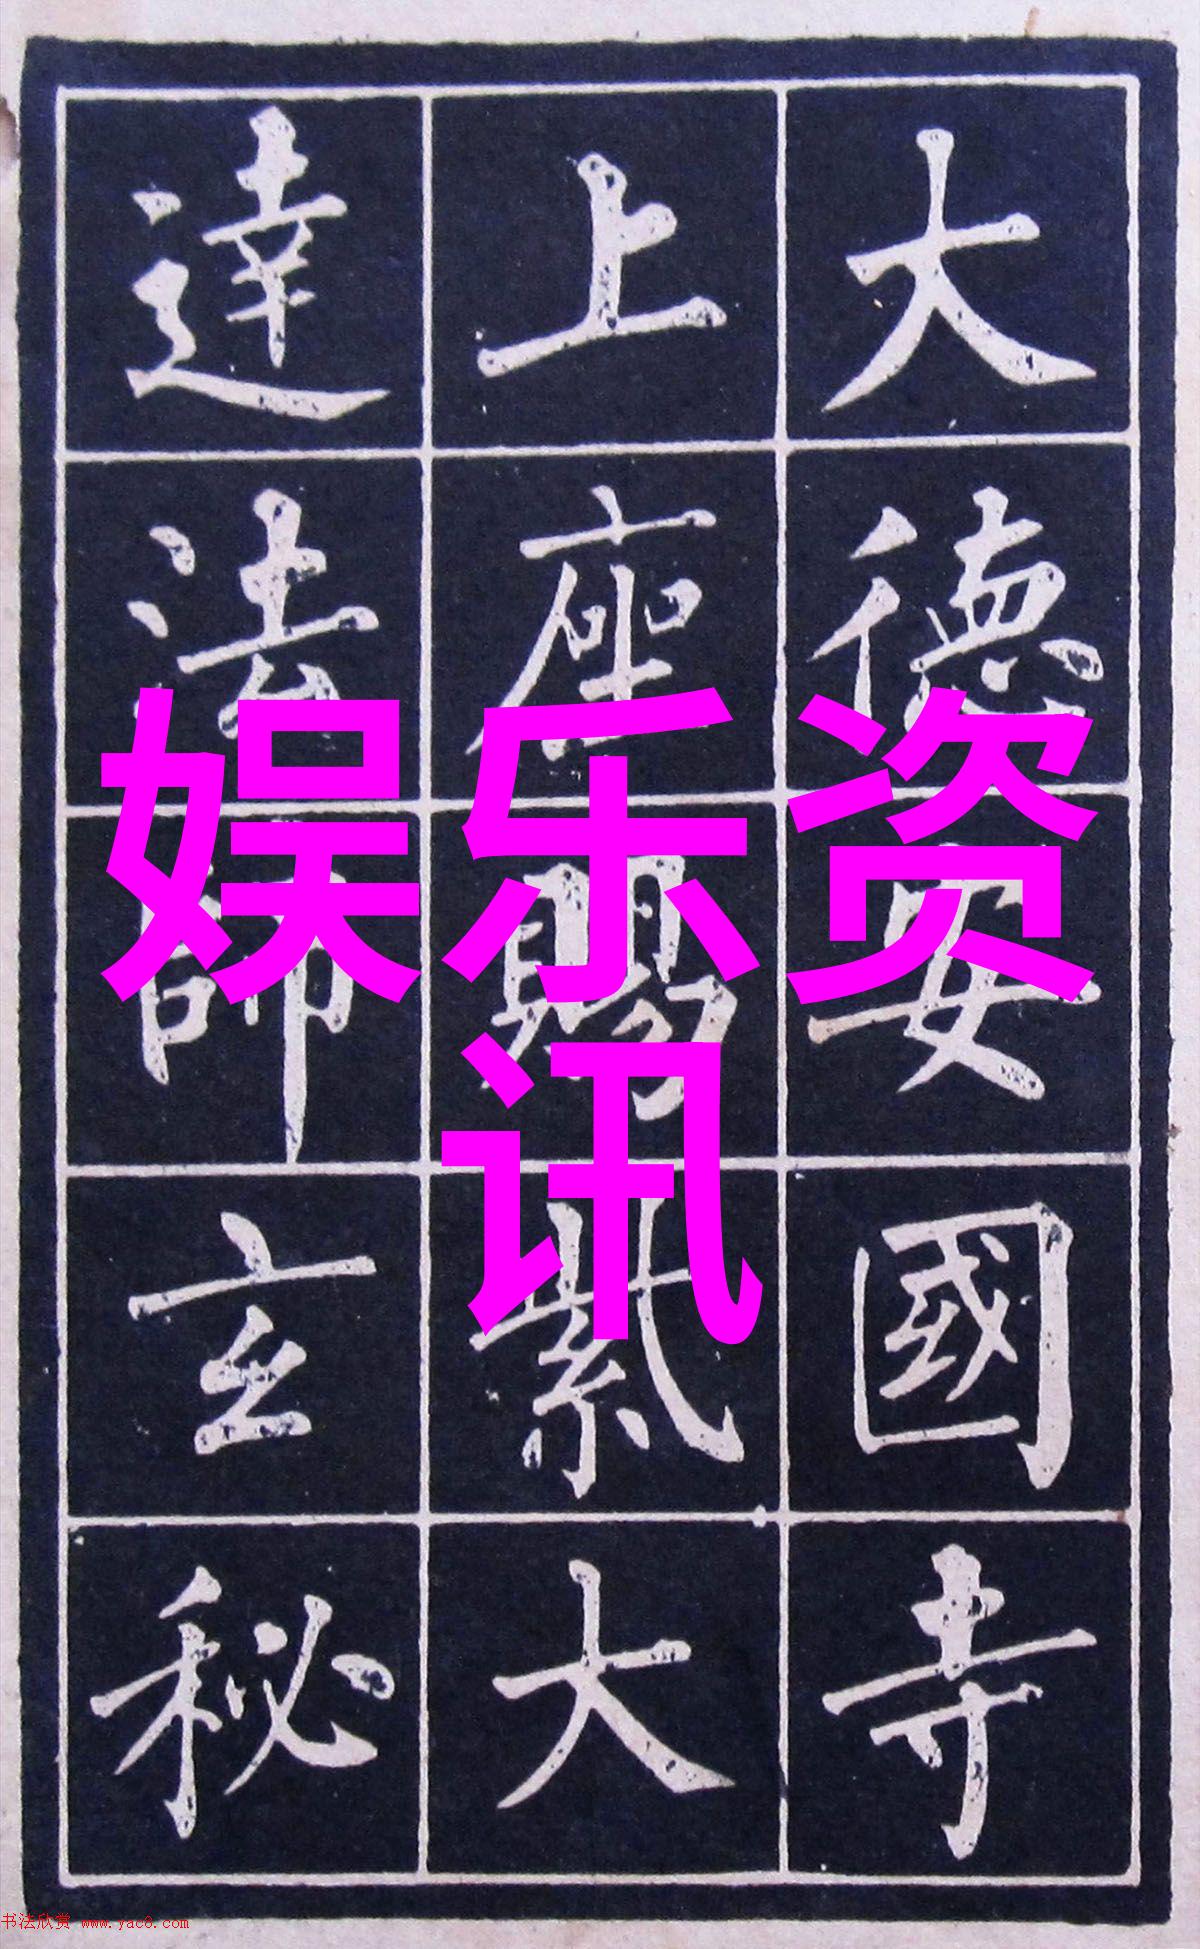 大德安國寺
上座賜紫大
達法師玄秘
娱乐资
讯
书法欣赏 www.yac8.com